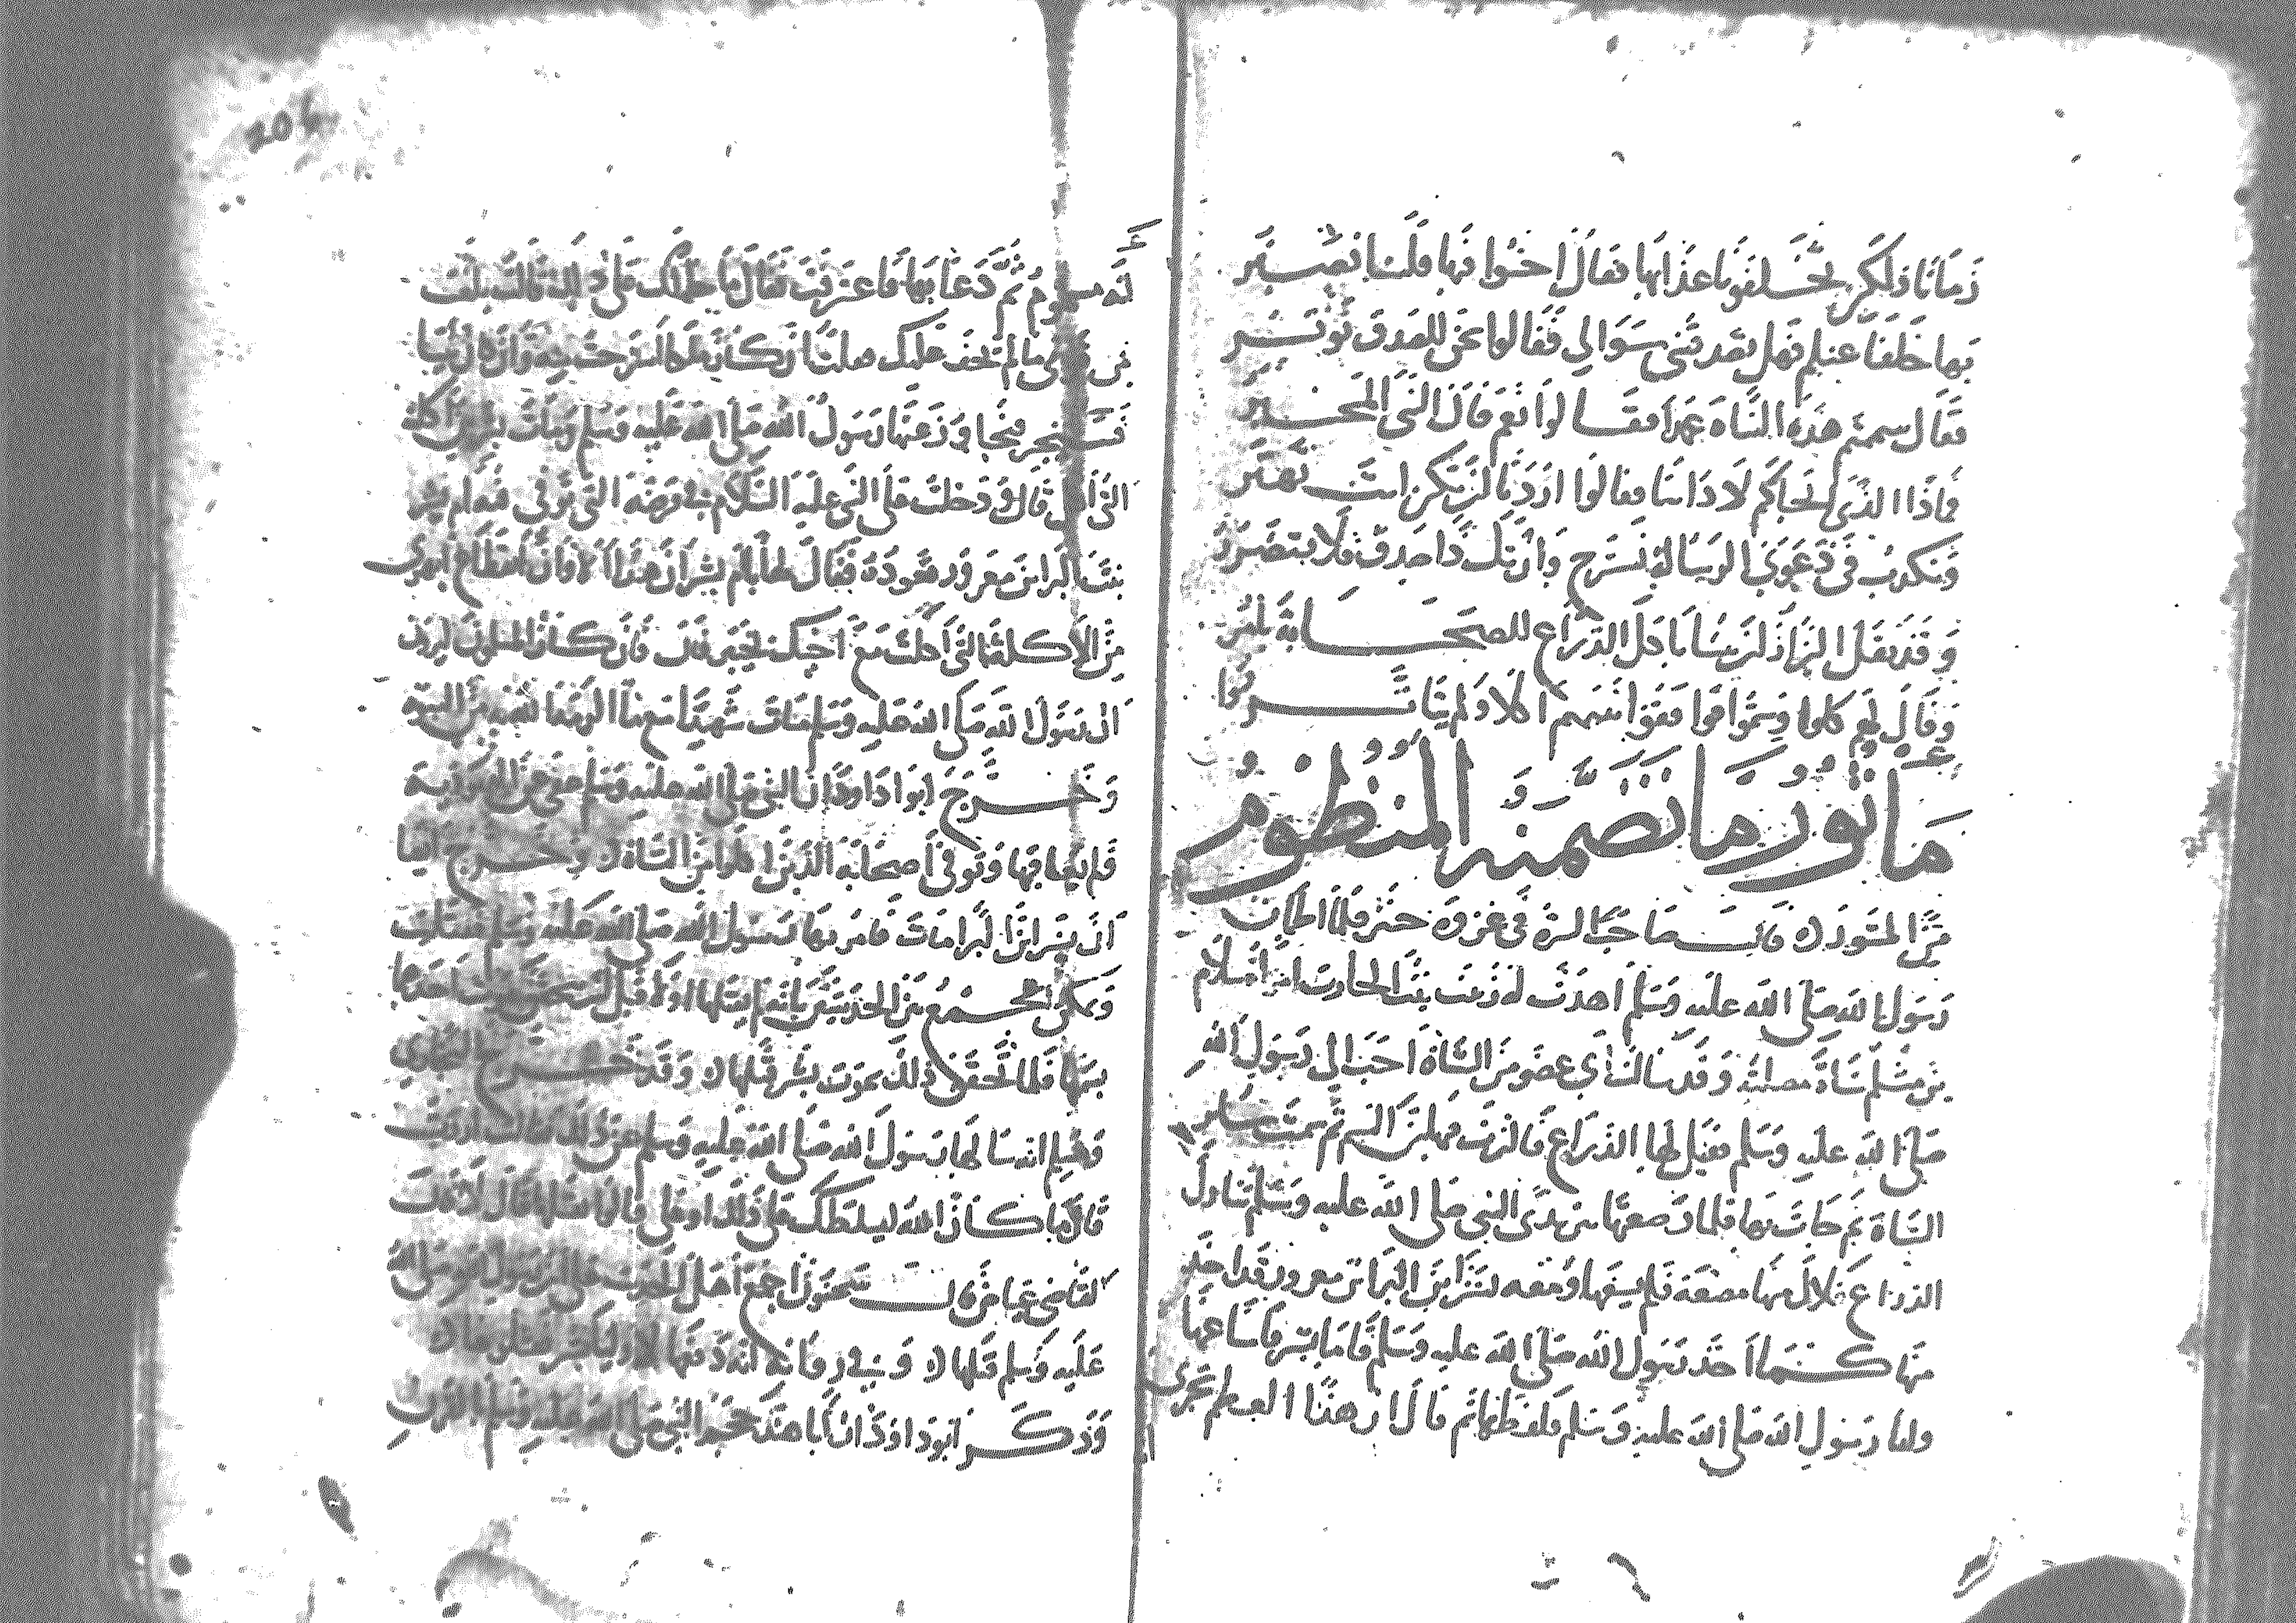 زمانا ولكن تخلفوما عذابها فقال اخسوا فيها فلسنا نصير
بها خلفا عنكم فهل تصدقني سوالي فقالوا نحن للصدق نوتر
فقال سممتم هذه الشاة عمدا فقالوا نعم قال النبي المخير
فماذا الذي الجاكم لاذاتنا فقالوا اردنا ان تكن انت
وتكذب في دعوى الرسالة نسترح وان تك ذا صدق فلا تتضرر
وقد نقل البزاز لن يسا باجل الذراع للصحابة
وقال لهم كلوا وسموا فوا فقوا نفسهم اكلا ولم يتاثروا
ماثور ما تضمنه المنظوم
قالت صاحب الدرة في غزوة خيبر فلما اطمان
رسول الله صلى الله عليه وسلم اهدت له زينب بنت الحارث امراة سلام
بن مشكم شاة مصلية وقد سالت اي عضو من الشاة احب الى رسول الله
صلى الله عليه وسلم فقيل لها الذراع فاكثرت فيها من السم ثم سمت ساير
الشاة ثم جات بها فلما وضعتها بين يدي النبي صلى الله عليه وسلم تناول
الذراع فلاك منها مضغة فلم يسغها ومعه بشر بن البرا بن معرور قد اخذ
منها كما اخذ رسول الله صلى الله عليه وسلم فاما بشر فاساغها
واما رسول الله صلى الله عليه وسلم فلفظها ثم قال ان هذا العظم يخبرني
206
انه مسموم ثم دعا بها فاعترفت فقال ما حملك على ذلك قالت بلغت
من قومي ما لم يخف عليك فقلت ان كان ملكا استرحت منه وان كان نبيا
فسيخبر فتجاوز عنها رسول الله صلى الله عليه وسلم ومات بشر من اكلته
التي اكل قال ودخلت على النبي عليه السلام في مرضه التي توفي فيه ام بشر
بنت البرا بن معرور تعوده فقال لها يا ام بشر ان هذا الاوان انقطاع ابهري
من الاكلة التي اكلت مع اخيك بخيبر قال فان كان المسلمون ليرون
ان رسول الله صلى الله عليه وسلم مات شهيدا مع ما اكرمه الله به من النبوة
وخرج ابوا داود ان النبي صلى الله عليه وسلم عفى عن اليهودية
ولم يعاقبها وتوفي اصحابه الذين اكلوا من الشاة وخرج ايضا
ان بشر ابن البرا مات فامر بها رسول الله صلى الله عليه وسلم فقتلت
ويمكن الجمع بين الحديثين بانه لم يقتلها اولا قبل ان يتحقق موت احد
بسمها فلما تحقق ذلك بموت بشر قتلها وقد خرج البخاري
ومسلم انه سالها رسول الله صلى الله عليه وسلم عن ذلك فقالت اردت
قال ما كان الله ليسلطك على ذلك او علي قالوا انقتلها قال لا
القاضي عياض قال سحنون اجمع اهل الحديث على ان رسول الله صلى الله
عليه وسلم قتلها وفي رواية انه دفعها لاوليا بشر فقتلوها
وذكر ابو داوود ان ابا هند حجم النبي صلى الله عليه وسلم بالقرن